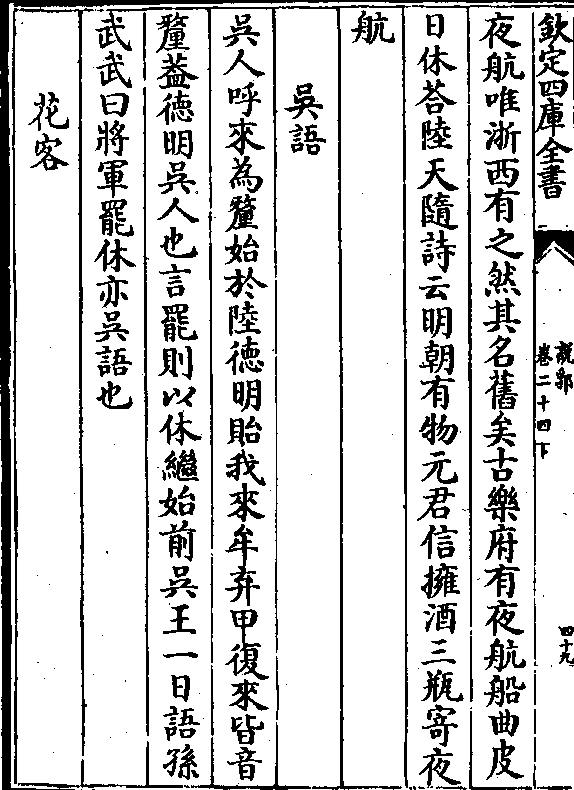 欽定四庫全書
說郛
卷二十四下
四十九
夜航唯浙西有之然其名舊矣古樂府有夜航船曲皮
日休荅陸天隨詩云明朝有物元君信擁酒三瓶寄夜
航
吳語
吳人呼來為釐始於陸徳明貽我來牟弃甲復來皆音
釐葢徳明吳人也言罷則以休繼始前吳王一日語孫
武武曰將軍罷休亦吳語也
花客